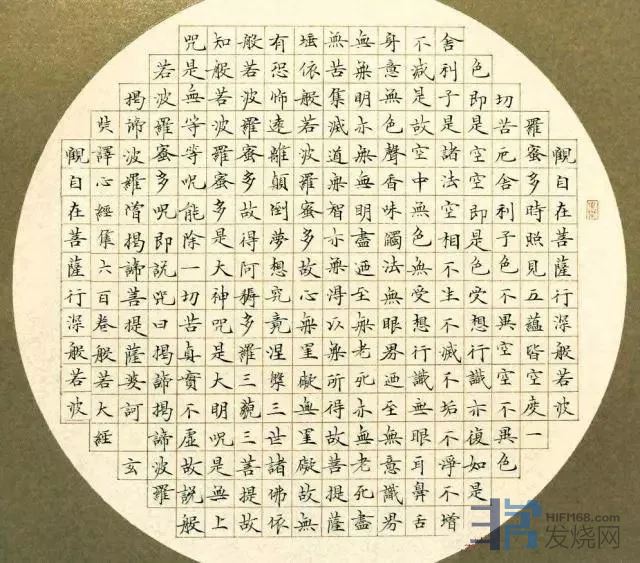 觀自在菩薩行深般若波
羅蜜多時照見五蘊皆空度一
切苦厄舍利子色不異空空不異色
色即是空空即是色受想行識亦復如是
舍利子是諸法空相不生不滅不垢不淨不增
不減是故空中無色無受想行識無眼耳鼻舌
身意無色聲香味觸法無眼界迺至無意識界
無無明亦無無明盡迺至無老死亦無老死盡
無苦集滅道無智亦無得以無所得故菩提薩
埵依般若波羅蜜多故心無罣礙無罣礙故無
有恐怖遠離顛倒夢想究竟涅槃三世諸佛依
般若波羅蜜多故得阿耨多羅三藐三菩提故
知般若波羅蜜多是大神咒是大明咒是無上
咒是無等等咒能除一切苦真實不虛故說般
若波羅蜜多咒即說咒曰揭諦揭諦波羅
揭諦波羅僧揭諦菩提薩婆訶 玄
奘譯心經集六百卷般若大經
觀自在菩薩行深般若波
HIFI168.com
发烧网